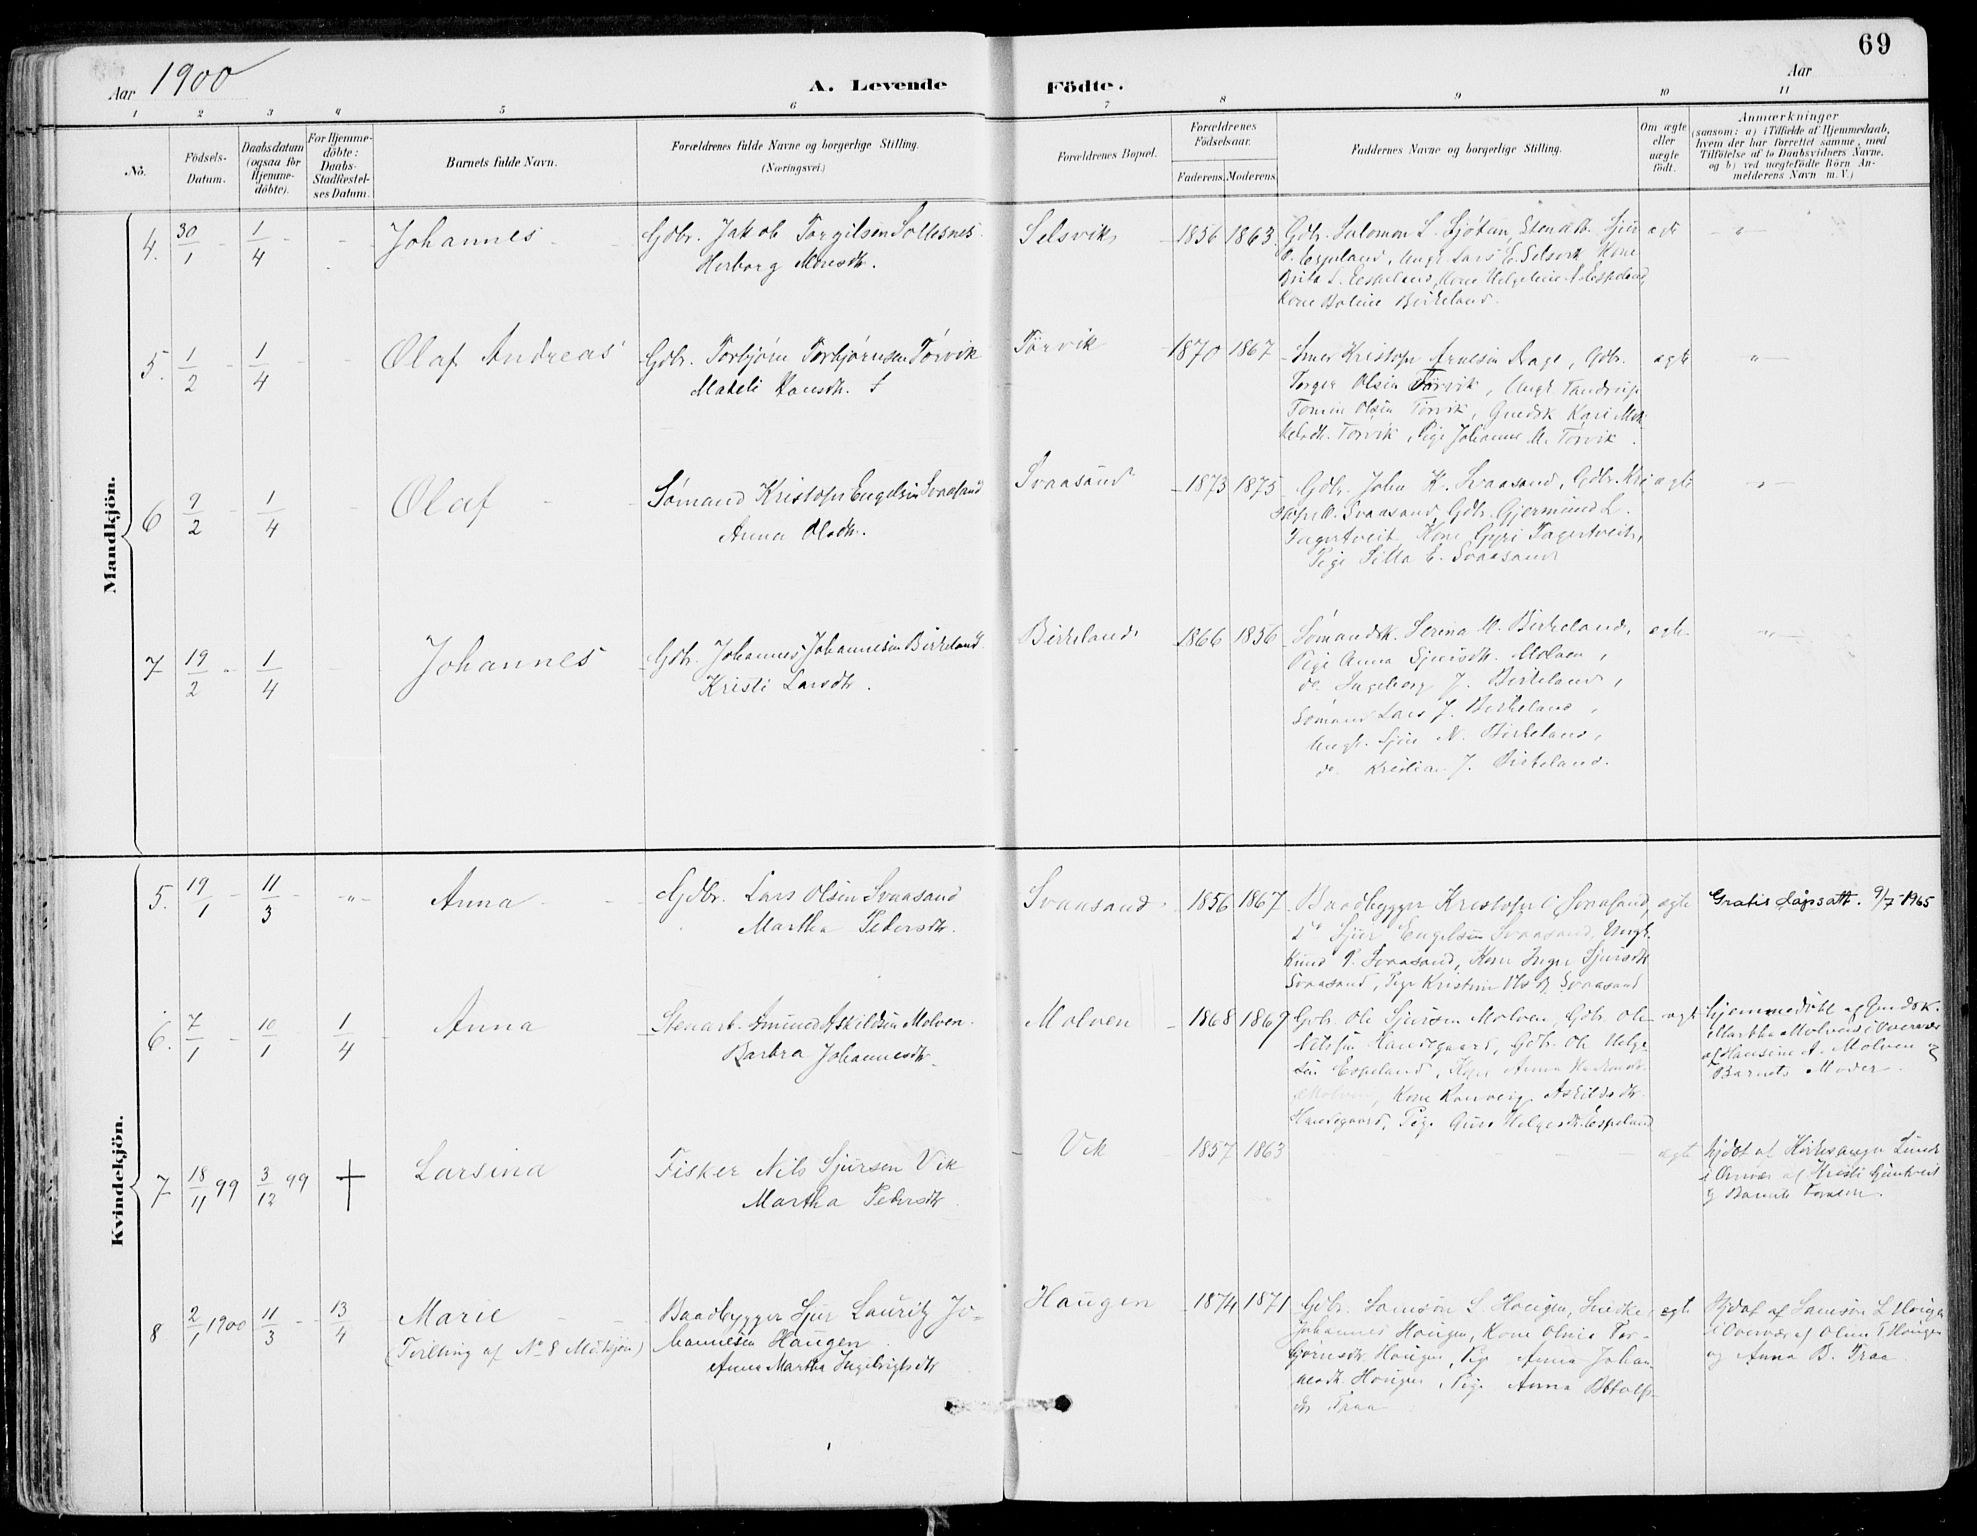 69
Aar 1900
A. Levende Födte.
Aar
1 2 3 4 5 6 7 8 9 10 11
No.
Födsels-Datum.
Daabsdatum (ogsaa for Hjemme-döbte).
For Hjemme-döbte: Daabs-Stadfæstel-ses Datum.
Barnets fulde Navn.
Forældrenes fulde Navne og borgerlige Stilling.
(Næringsvei.)
Forældrenes Bopæl.
Forældrenes Födselsaar.
Faderens. Moderens.
Faddernes Navne og borgerlige Stilling.
Om ægte eller uægte födt.
Anmærkninger
(saasom: a) i Tilfælde af Hjemmedaab, hvem der har forrettet samme, med Tilföielse af to Daabsvidners Navne, og b) ved uægtefödte Börn An-melderens Navn m. V.)
Mandkjön.
4. 30/1 - 1/4 - - Johannes - Gdbr. Jakob Torgilsen Solesnes
Herborg Monsdtr.
Selsvik 1856 1863 Gdbr. Salomon S. Sjötun, Stenarb. Sjur
P. Espeland, Ungk. Lars E. Selsvik, Kone
Brita L. Espeland, Kone Helgeline S. Espeland,
Kone Boline Birkeland.
ægte - " -
5. 1/2 - 1/4 - - Olaf Andreas Gdbr. Torbjörn Torbjörnsen Törvik
Makeli Hansdtr.
Törvik 1870 1867 Kristofer Arnesen Aage, Gdbr.
Torger Olsen Törvik, Ungk.
Tomin Olsen Törvik, Gmdsk Kari
Törvik, Pige Johanne M. Törvik.
ægte "
6 9/2 - 1/4 - Olaf - Sömand Kristofer Engelsen Svaasand
Anna Olsdtr.
Svaasand 1873 1875 Gdbr. John K. Svaasand, Gdbr. Kri
stofer O. Svaasand, Gdbr. Gjermund L.
Fagertveit, Kone Gyri Fagertveit,
Pige Silla E. Svaasand
ægte - " -
7 19/2 - 1/4 - Johannes Gdbr. Johannes Johannesen Birkeland
Kristi Larsdtr.
Birkeland 1866 1856 Sömandsk. Serina M. Birkeland,
Pige Anna Sjursdtr. Molven,
do. Ingeborg J. Birkeland,
Sömand Lars J. Birkeland,
Ungk. Sjur N. Birkeland,
do. Kristian J. Birkeland.
ægte "
Kvindekjön.
5. 19/1 - 11/3 - " - Anna - - Gdbr. Lars Olsen Svaasand
Martha Pedersdtr.
Svaasand 1856 1867 Baadbygger Kristofer O Svaasand,
Do Sjur Engelsen Svaasand, Ungk.
Knud P. Svaasand, Kone Inger Sjursdtr
Svaasand, Pige Kristine Svaasand
ægte Gratis dåpsatt. 9/7-1965
6. 7/1 - 10/1 1/4 Anna Stenarb. Amund Askildsen Molven.
Barbra Johannesdtr.
Molven 1868 1869 Gdbr. Ole Sjursen Molven, Gdbr. Ole
Nilssen Handegaard, Gdbr. Ole Helge-
sen Espeland, Kone Anna
Molven, Kone Ranveig Askildsdtr.
Handegaard, Pige Guro Helgesdtr. Espeland
ægte Hjemmedöbt af Gmdsk.
Martha Molven i Overvær
af Hansine A. Molven og
Barnets Moder.
7 18/11 99 3/12 99 † Larsina Fisker Nils Sjursen Vik
Martha Pedersdtr.
Vik 1857 1863 - - -
ægte Hjdöbt af Kirkesanger Lund
i Overvær af Kristi
og Barnets Forældre.
8 2/1 1900 11/3 - 13/4 Marie - -
(Tvilling af No 8 Mandkjön)
Baadbygger Sjur Lauritz Jo-
hannesen Haugen
Anna Martha Ingebrigtsdtr
Haugen 1874 1871 Gdbr. Samson L. Haugen, Smed
Johannes Haugen, Kone Olina Tor-
björnsdtr. Haugen, Pige Anna Johan-
nesdtr. Haugen, Pige Anna
dtr Traa
ægte Hjdöbt af Samson L. Haugen
i Overvær af Olina T Haugen
og Anna B. Traa